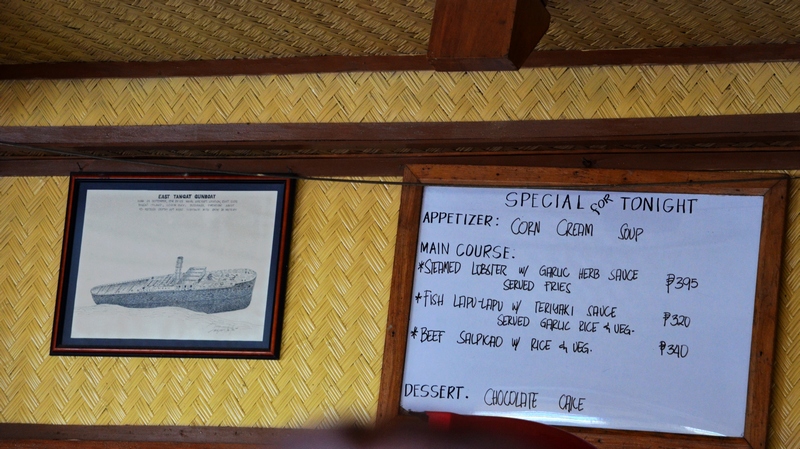 EAST TANGAT GUNBOAT
SPECIAL FOR TONIGHT
APPETIZER: CORN CREAM SOUP
MAIN COURSE.
*STEAMED LOBSTER W/ GARLIC HERB SAUCE ₱395
SERVED FRIES
*FISH LAPU-LAPU W/ TERIYAKI SAUCE ₱320
SERVED GARLIC RICE & VEG.
*BEEF SALPICAO W/ RICE & VEG. ₱340
DESSERT. CHOCOLATE CAKE